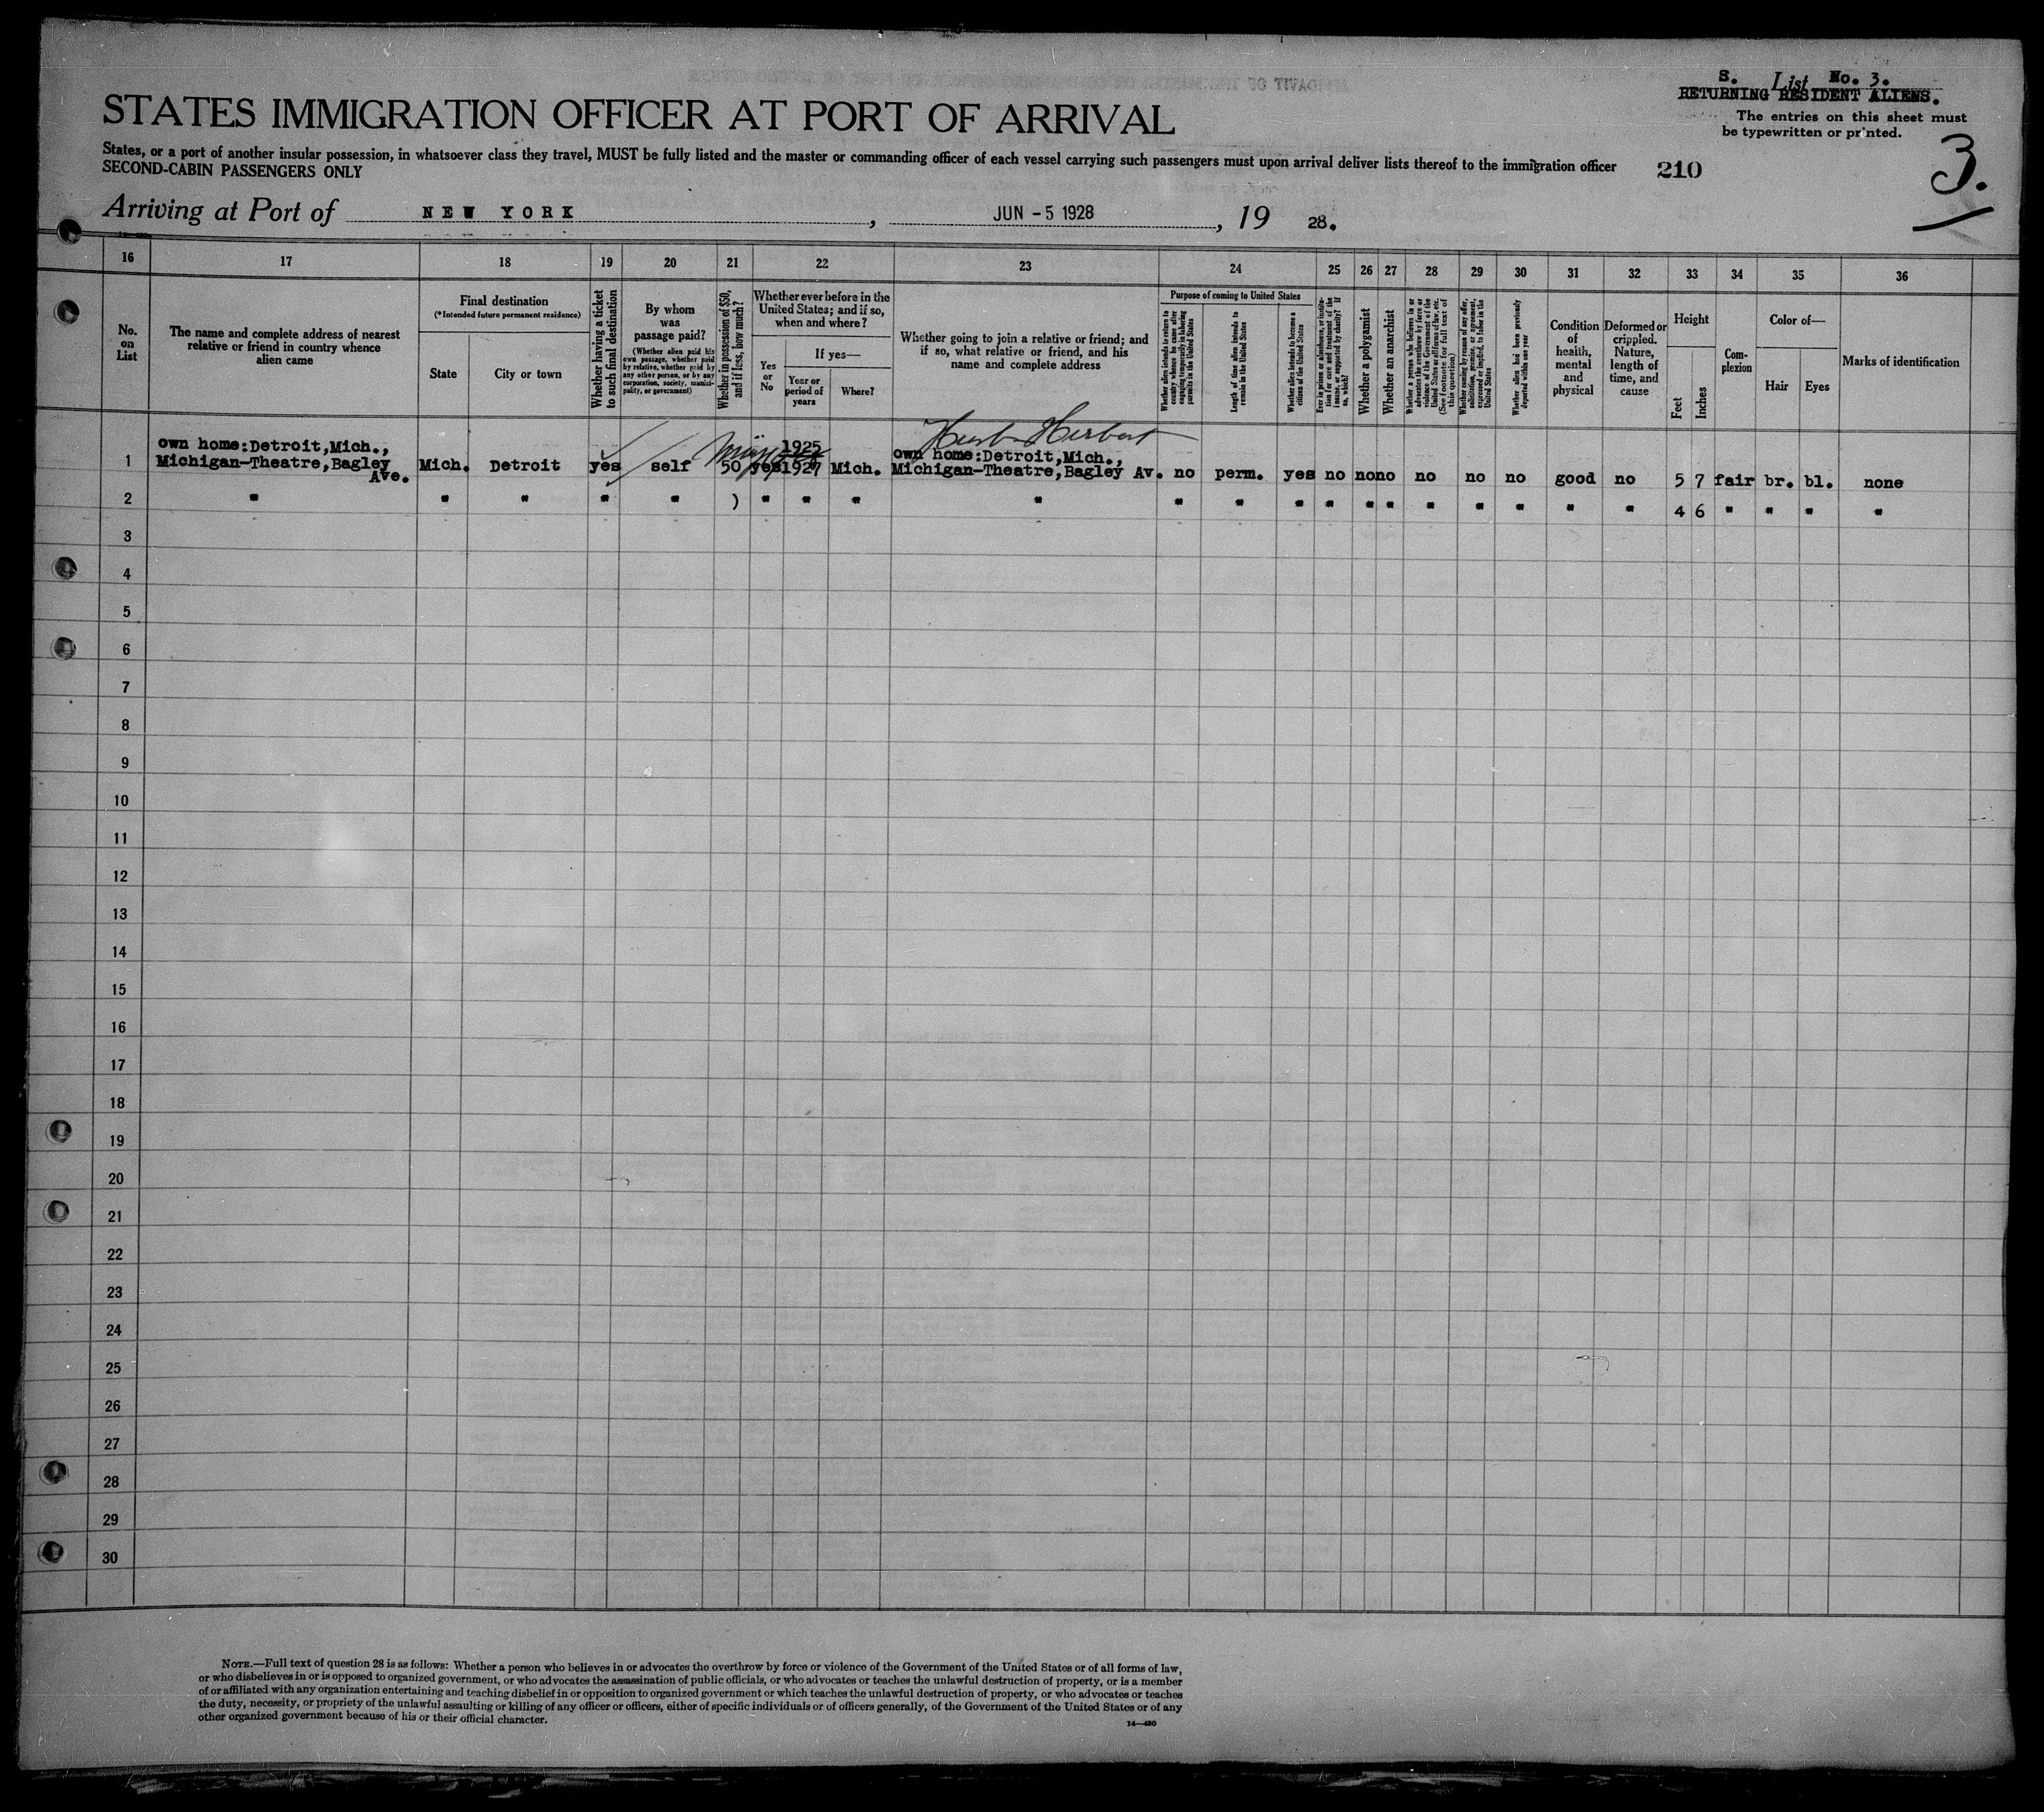 S. List No. 3.
RETURNING RESIDENT ALIENS.
The entries on this sheet must
be typewritten or pr'nted.
3.
STATES IMMIGRATION OFFICER AT PORT OF ARRIVAL
States, or a port of another insular possession, in whatsoever class they travel, MUST be fully listed and the master or commanding officer of each vessel carrying such passengers must upon arrival deliver lists thereof to the immigration officer
SECOND-CABIN PASSENGERS ONLY
210
Arriving at Port of NEW YORK, JUN -5 1928, 19 28.
16 17 18 19 20 21 22 23 24 25 26 27 28 29 30 31 32 33 34 35 36
No. on List
The name and complete address of nearest relative or friend in country whence alien came
Final destination
(*Intended future permanent residence)
State
City or town
Whether having a ticket to such final destination
By whom was passage paid?
(Whether alien paid his own passage, whether paid by relative, whether paid by any other person, or by any corporation, society, munici-pality, or government)
Whether in possession of $50, and if less, how much?
Whether ever before in the United States; and if so, when and where?
Yes or No
If yes—
Year or period of years
Where?
Whether going to join a relative or friend; and if so, what relative or friend, and his name and complete address
Purpose of coming to United States
Whether alien intends to return to country whence he came after engaging temporarily in laboring pursuits in the United States
Length of time alien intends to remain in the United States
Whether alien intends to become a citizen of the United States
Ever in prison or almshouse, or institu-tion for care and treatment of the insane, or supported by charity? If so, which?
Whether a polygamist
Whether an anarchist
Whether a person who believes in or advocates the overthrow by force or violence of the Government of the United States or all forms of law, etc. (See footnote for full text of this question)
Whether coming by reason of any offer, solicitation, promise, or agreement, expressed or implied, to labor in the United States
Whether alien had been previously deported within one year
Condition of health, mental and physical
Deformed or crippled. Nature, length of time, and cause
Height
Feet
Inches
Com-plexion
Color of—
Hair
Eyes
Marks of identification
Herbert
1925
own home:Detroit,Mich., own home:Detroit,Mich.,
1 Michigan-Theatre,Bagley Ave. Mich. Detroit yes self 50 yes 1927 Mich. Michigan-Theatre,Bagley Av. no perm. yes no no no no no no good no 5 7 fair br. bl. none
2 " " " " " ) " " " " " " " " " " " " " " " 4 6 " " " "
3
4
5
6
7
8
9
10
11
12
13
14
15
16
17
18
19
20
21
22
23
24
25
26
27
28
29
30
NOTE.—Full text of question 28 is as follows: Whether a person who believes in or advocates the overthrow by force or violence of the Government of the United States or of all forms of law,
or who disbelieves in or is opposed to organized government, or who advocates the assassination of public officials, or who advocates or teaches the unlawful destruction of property, or is a member
of or affiliated with any organization entertaining and teaching disbelief in or opposition to organized government or which teaches the unlawful destruction of property, or who advocates or teaches
the duty, necessity, or propriety of the unlawful assaulting or killing of any officer or officers, either of specific individuals or of officers generally, of the Government of the United States or of any
other organized government because of his or their official character.
14—480